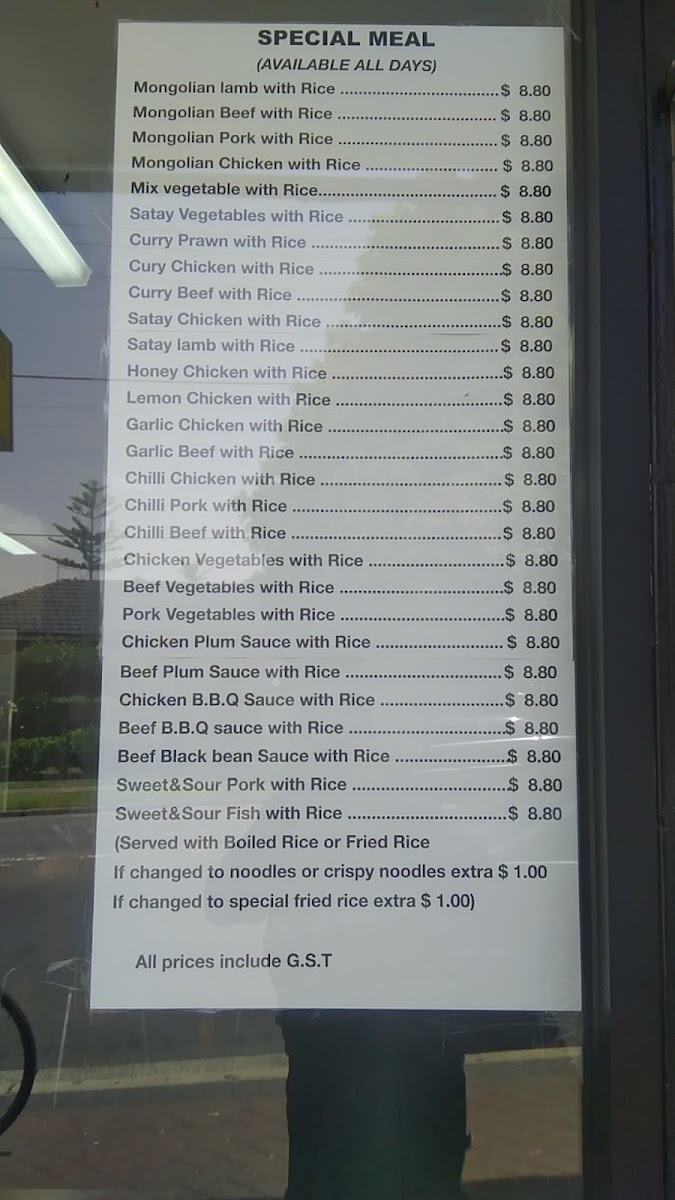 SPECIAL MEAL
(AVAILABLE ALL DAYS)
Mongolian lamb with Rice ................................$ 8.80
Mongolian Beef with Rice ................................ $ 8.80
Mongolian Pork with Rice ................................ $ 8.80
Mongolian Chicken with Rice ........................... $ 8.80
Mix vegetable with Rice.................................... $ 8.80
Satay Vegetables with Rice ..............................$ 8.80
Curry Prawn with Rice ......................................$ 8.80
Cury Chicken with Rice .....................................$ 8.80
Curry Beef with Rice .........................................$ 8.80
Satay Chicken with Rice ...................................$ 8.80
Satay lamb with Rice ........................................$ 8.80
Honey Chicken with Rice ..................................$ 8.80
Lemon Chicken with Rice .................................$ 8.80
Garlic Chicken with Rice ...................................$ 8.80
Garlic Beef with Rice .........................................$ 8.80
Chilli Chicken with Rice .....................................$ 8.80
Chilli Pork with Rice ..........................................$ 8.80
Chilli Beef with Rice ..........................................$ 8.80
Chicken Vegetables with Rice ...........................$ 8.80
Beef Vegetables with Rice .................................$ 8.80
Pork Vegetables with Rice .................................$ 8.80
Chicken Plum Sauce with Rice .......................... $ 8.80
Beef Plum Sauce with Rice ...............................$ 8.80
Chicken B.B.Q Sauce with Rice .........................$ 8.80
Beef B.B.Q sauce with Rice ...............................$ 8.80
Beef Black bean Sauce with Rice .......................$ 8.80
Sweet&Sour Pork with Rice ................................$ 8.80
Sweet&Sour Fish with Rice ................................$ 8.80
(Served with Boiled Rice or Fried Rice
If changed to noodles or crispy noodles extra $ 1.00
If changed to special fried rice extra $ 1.00)
All prices include G.S.T